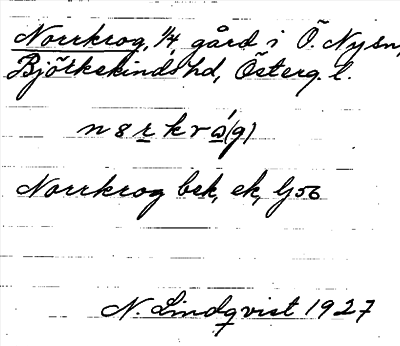 Norrkrog, 1/4 gård i Ö. Nysn,
Björkekinds hd, Österg. l.
Norrkrog bek, ek, Gs 56
N. Lindqvist 1927